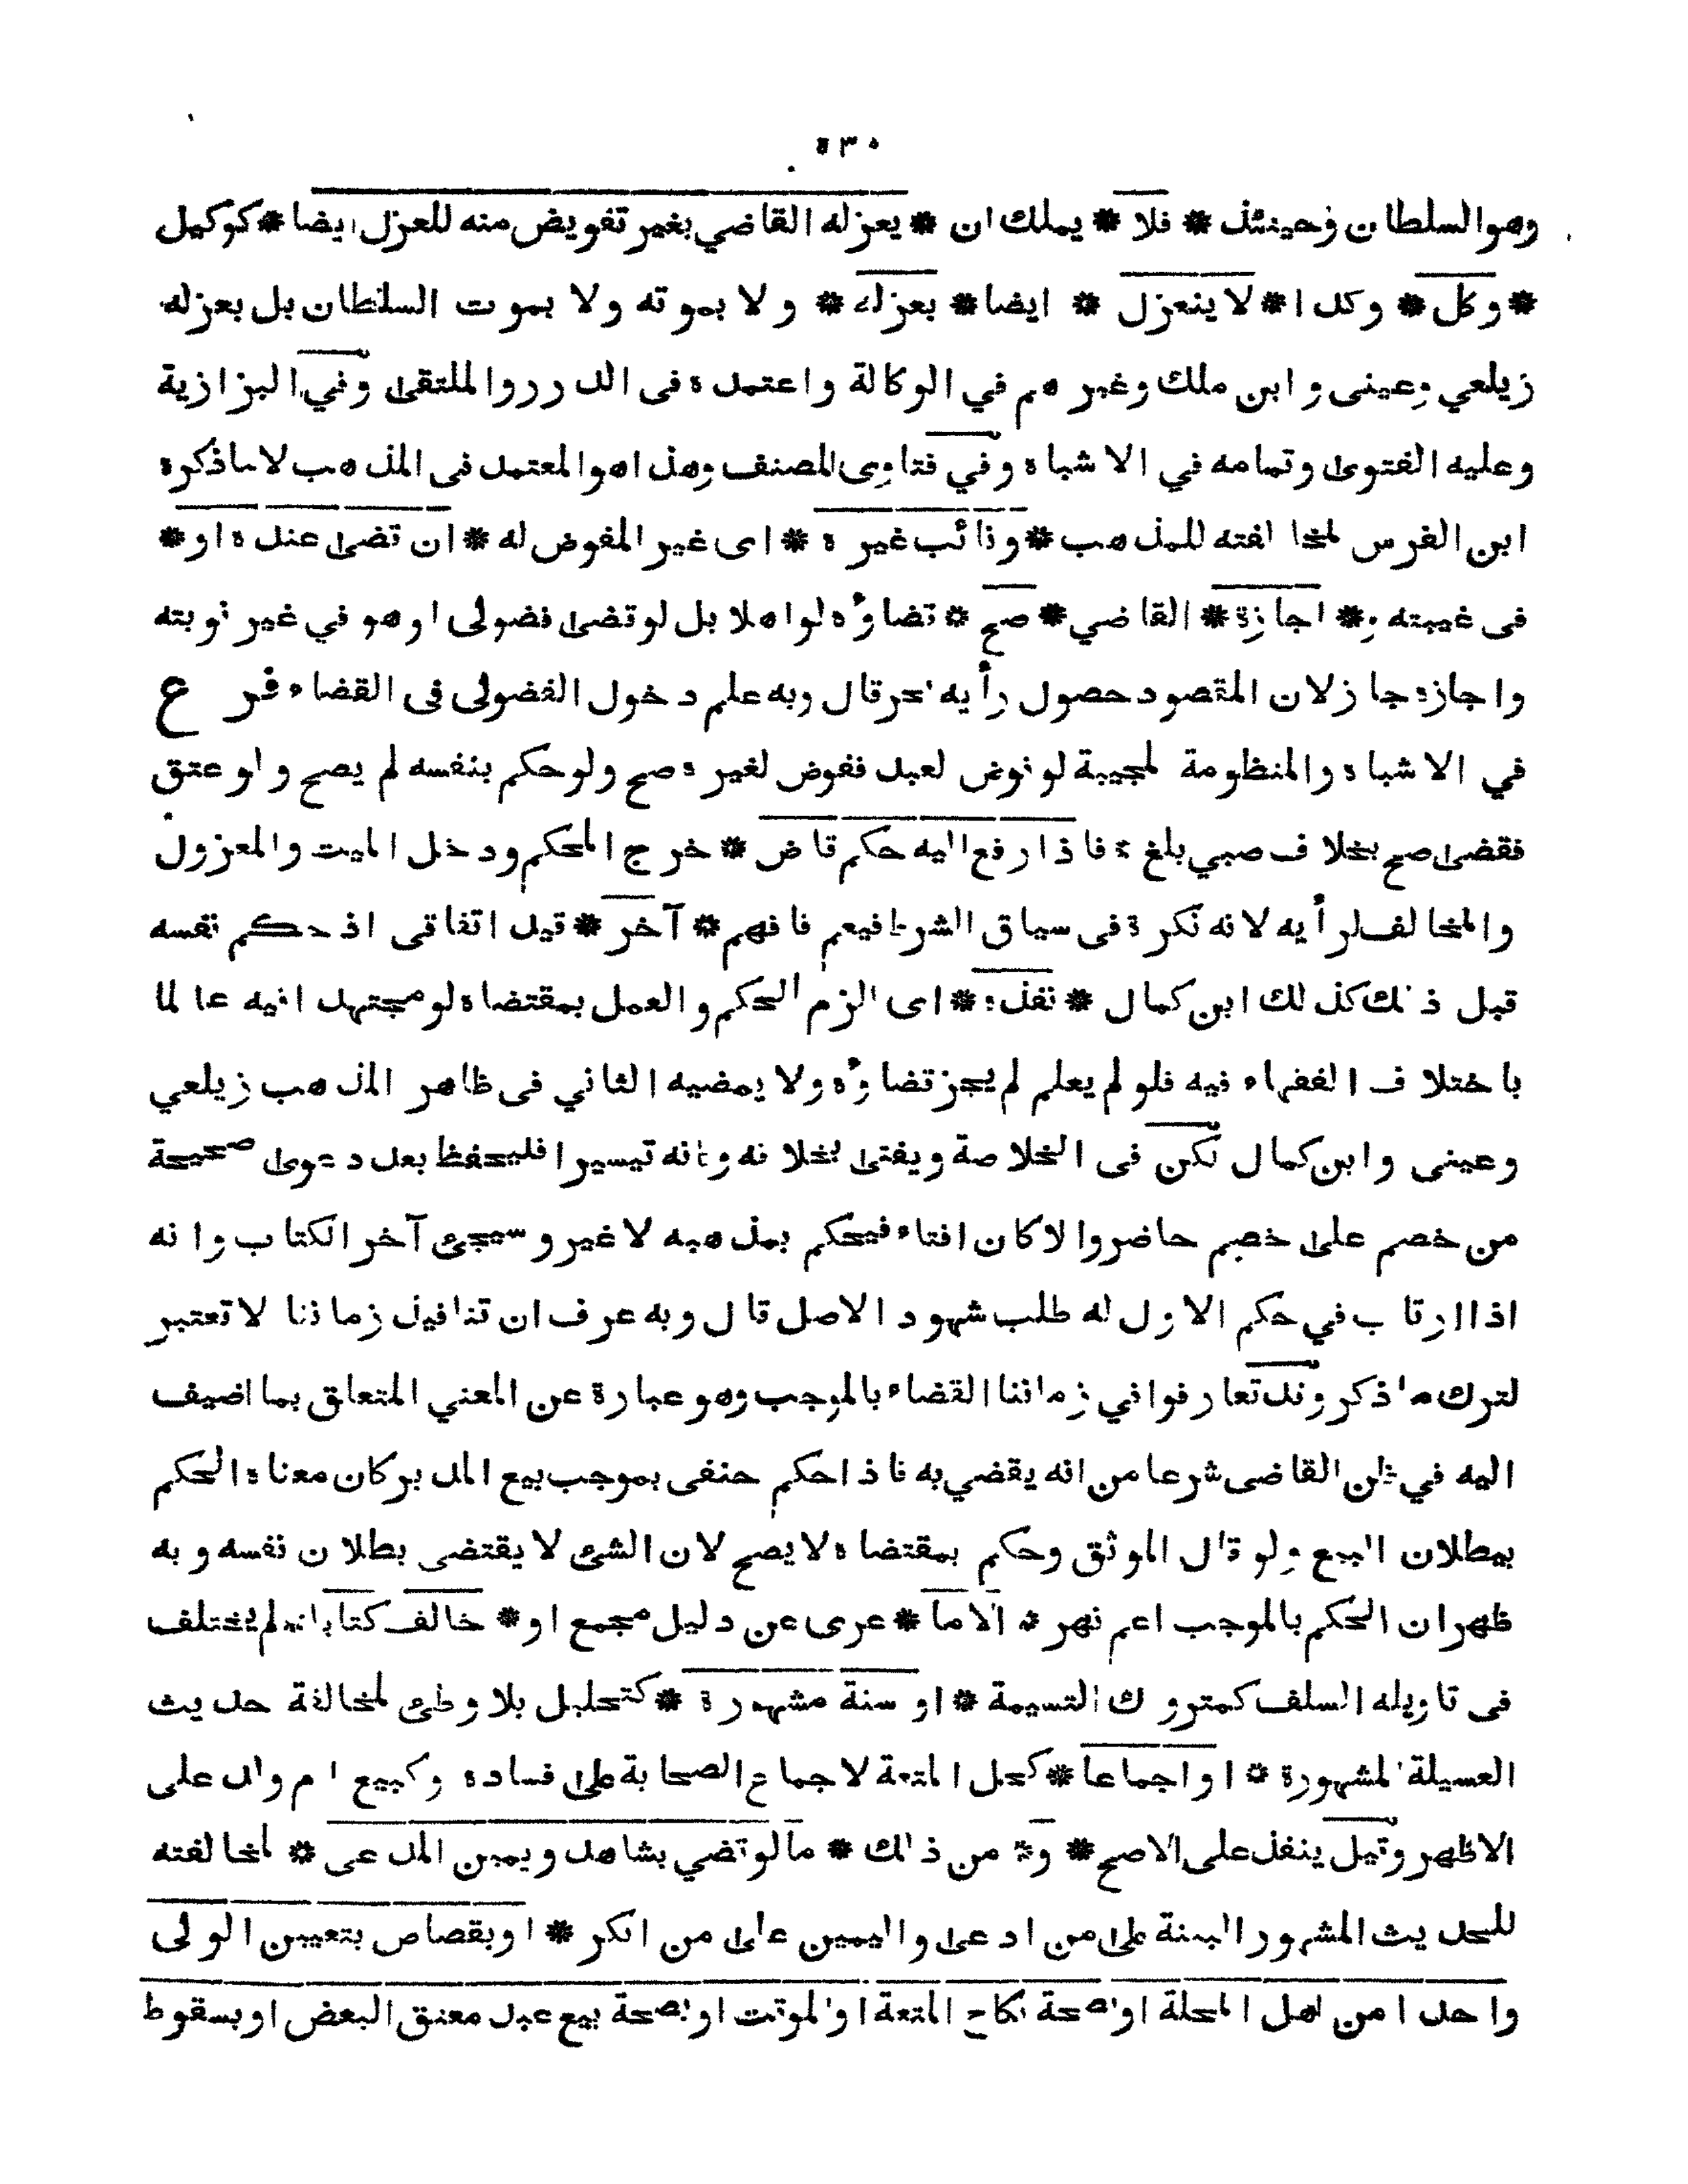 ٥٣٠
وهو السلطان وحينئذ * فلا * يملك ان * يعزله القاضي بغير تفويض منه للعزل ايضا * كوكيل
* وكل * وكذا * لا ينعزل * ايضا * بعزله * ولا بموته ولا بموت السلطان بل بعزله
زيلعي وعينى وابن ملك وغيرهم في الوكالة واعتمده فى الدرر والملتقى وفي البزازية
وعليه الفتوى وتمامه في الاشباه وفي فتاوى المصنف وهذا هو المعتمد فى المذهب لا ما ذكره
ابن الغرس لمخالفته للمذهب * ونائب غيره * اى غير المفوض له * ان قضى عنده او *
فى غيبته و * اجازه * القاضي * صح * قضاؤه لو اهلا بل لو قضى فضولى او هو في غير نوبته
واجازه جاز لان المقصود حصول رأيه بحر قال وبه علم دخول الفضولى فى القضاء فرع
في الاشباه والمنظومة المحبية لو فوض لعبد ففوض لغيره صح ولو حكم بنفسه لم يصح ولو عتق
فقضى صح بخلاف صبي بلغ * فاذا رفع اليه حكم قاض * خرج المحكم ودخل الميت والمعزول
والمخالف لرأيه لانه نكرة فى سياق الشرط فيعم فافهم * آخر * قيد اتفاقى اذ حكم نفسه
قبل ذلك كذلك ابن كمال * نفذه * اى الزم الحكم والعمل بمقتضاه لو مجتهدا فيه عالما
باختلاف الفقهاء فيه فلو لم يعلم لم يجز قضاؤه ولا يمضيه الثاني فى ظاهر المذهب زيلعي
وعينى وابن كمال لكن فى الخلاصة ويفتى بخلافه وكانه تيسيرا فليحفظ بعد دعوى صحيحة
من خصم على خصم حاضر والا كان افتاء فيحكم بمذهبه لا غير وسيجئ آخر الكتاب وانه
اذا ارتاب في حكم الاول له طلب شهود الاصل قال وبه عرف ان تنافيذ زماننا لا تعتبر
لترك ما ذكر وقد تعارفوا في زماننا القضاء بالموجب وهو عبارة عن المعني المتعلق بما اضيف
اليه في ظن القاضى شرعا من انه يقضي به فاذا حكم حنفى بموجب بيع المدبر كان معناه الحكم
ببطلان البيع ولو قال الموثق وحكم بمقتضاه لا يصح لان الشئ لا يقتضى بطلان نفسه وبه
ظهر ان الحكم بالموجب اعم نهر * الا ما * عرى عن دليل مجمع او * خالف كتابا * لم يختلف
فى تاويله السلف كمتروك التسمية * او سنة مشهورة * كتحليل بلا وطئ لمخالفة حديث
العسيلة المشهورة * او اجماعا * كحل المتعة لاجماع الصحابة على فساده وكبيع ام ولد على
الاظهر وقيل ينفذ على الاصح * و * من ذلك * ما لو قضي بشاهد ويمين المدعى * لمخالفته
للحديث المشهور البينة على من ادعى واليمين على من انكر * او بقصاص بتعيين الولى
واحدا من اهل المحلة او بصحة نكاح المتعة او الموقت او بصحة بيع عبد معتق البعض او بسقوط